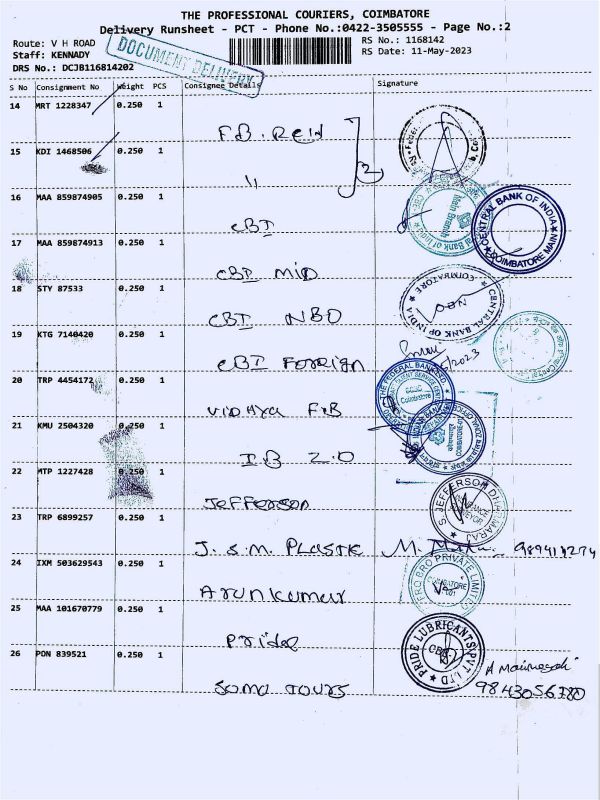 THE PROFESSIONAL COURIERS, COIMBATORE
Delivery Runsheet - PCT - Phone No.:0422-3505555 - Page No.:2
Route: V H ROAD
RS No.: 1168142
Staff: KENNADY
RS Date: 11-May-2023
DRS No.: DCJB116814202
DOCUMENT DELIVERY
S No Consignment No Weight PCS Consignee Details Signature
14 MRT 1228347 0.250 1
F.B. Rein
15 KDI 1468506 0.250 1
"
2
16 MAA 859874905 0.250 1
CBI
CENTRAL BANK OF INDIA
COIMBATORE MAIN
17 MAA 859874913 0.250 1
CBI MID
18 STY 87533 0.250 1
CBI NBO
CENTRAL BANK OF INDIA
COIMBATORE
19 KTG 7140420 0.250 1
CBI Foreign
20 TRP 4454172 0.250 1
Vidhya F.B
THE FEDERAL BANK
Coimbatore
21 KMU 2504320 0.250 1
I.B Z.O
INDIAN BANK
22 MTP 1227428 0.250 1
Jefferson
S. JEFFERSON DHARMARAJ
INSURANCE SURVEYOR
23 TRP 6899257 0.250 1
J.S.M. Plastic
24 IXM 503629543 0.250 1
Arunkumar
BRO PRIVATE LIMITED
COIMBATORE
25 MAA 101670779 0.250 1
Pride
PRIDE LUBRICANTS PVT LTD
CBE
26 PON 839521 0.250 1
Soma Tours
9843056780